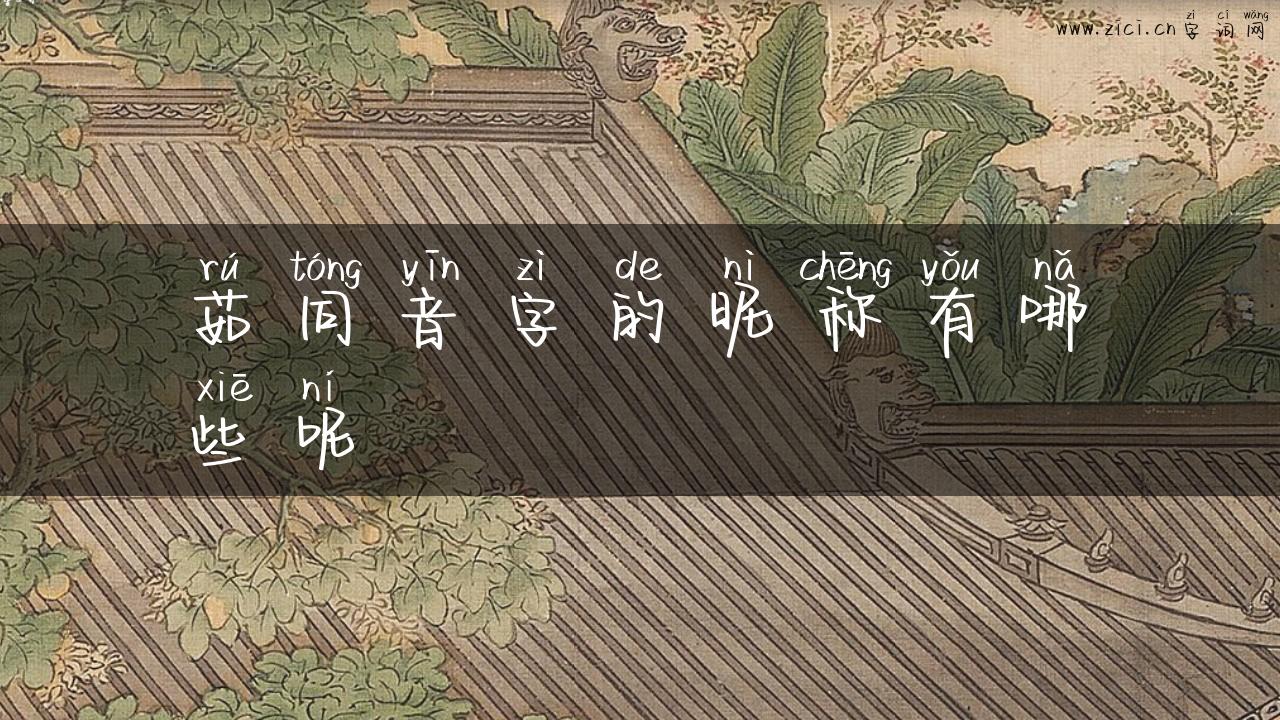 zì cí wǎng
www.zici.cn 字词网
rú tóng yīn zì de nì chēng yǒu nǎ
茹同音字的昵称有哪
xiē ní
些呢